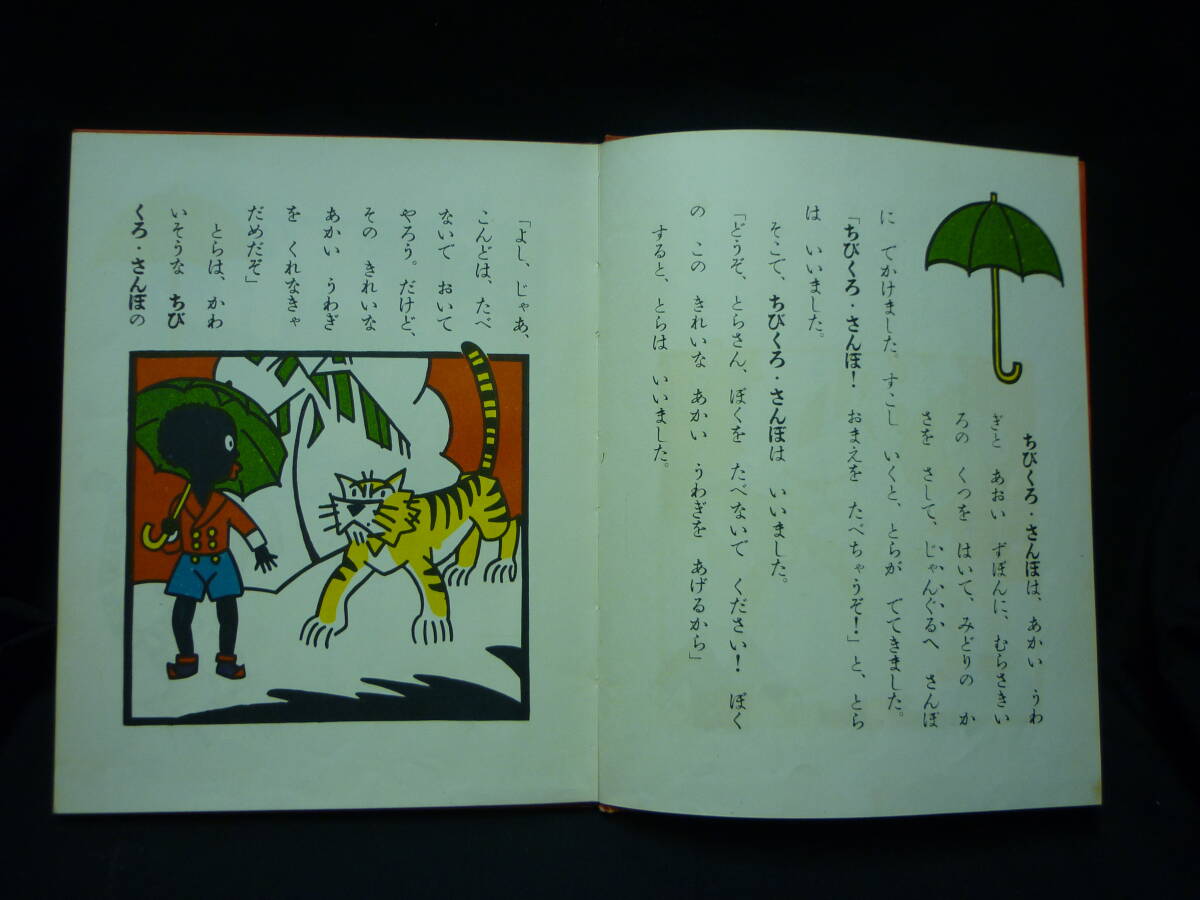 ちびくろ・さんぼは、あかい うわ
ぎと あおい ずぼんに、むらさきい
ろの くつを はいて、みどりの か
さを さして、じゃんぐるへ さんぽ
に でかけました。すこし いくと、とらが でてきました。
「ちびくろ・さんぼ! おまえを たべちゃうぞ!」と、とら
は いいました。
そこで、ちびくろ・さんぼは いいました。
「どうぞ、とらさん、ぼくを たべないで ください! ぼく
の この きれいな あかい うわぎを あげるから」
すると、とらは いいました。
「よし、じゃあ、
こんどは、たべ
ないで おいて
やろう。だけど、
その きれいな
あかい うわぎ
を くれなきゃ
だめだぞ」
とらは、かわ
いそうな ちび
くろ・さんぼの